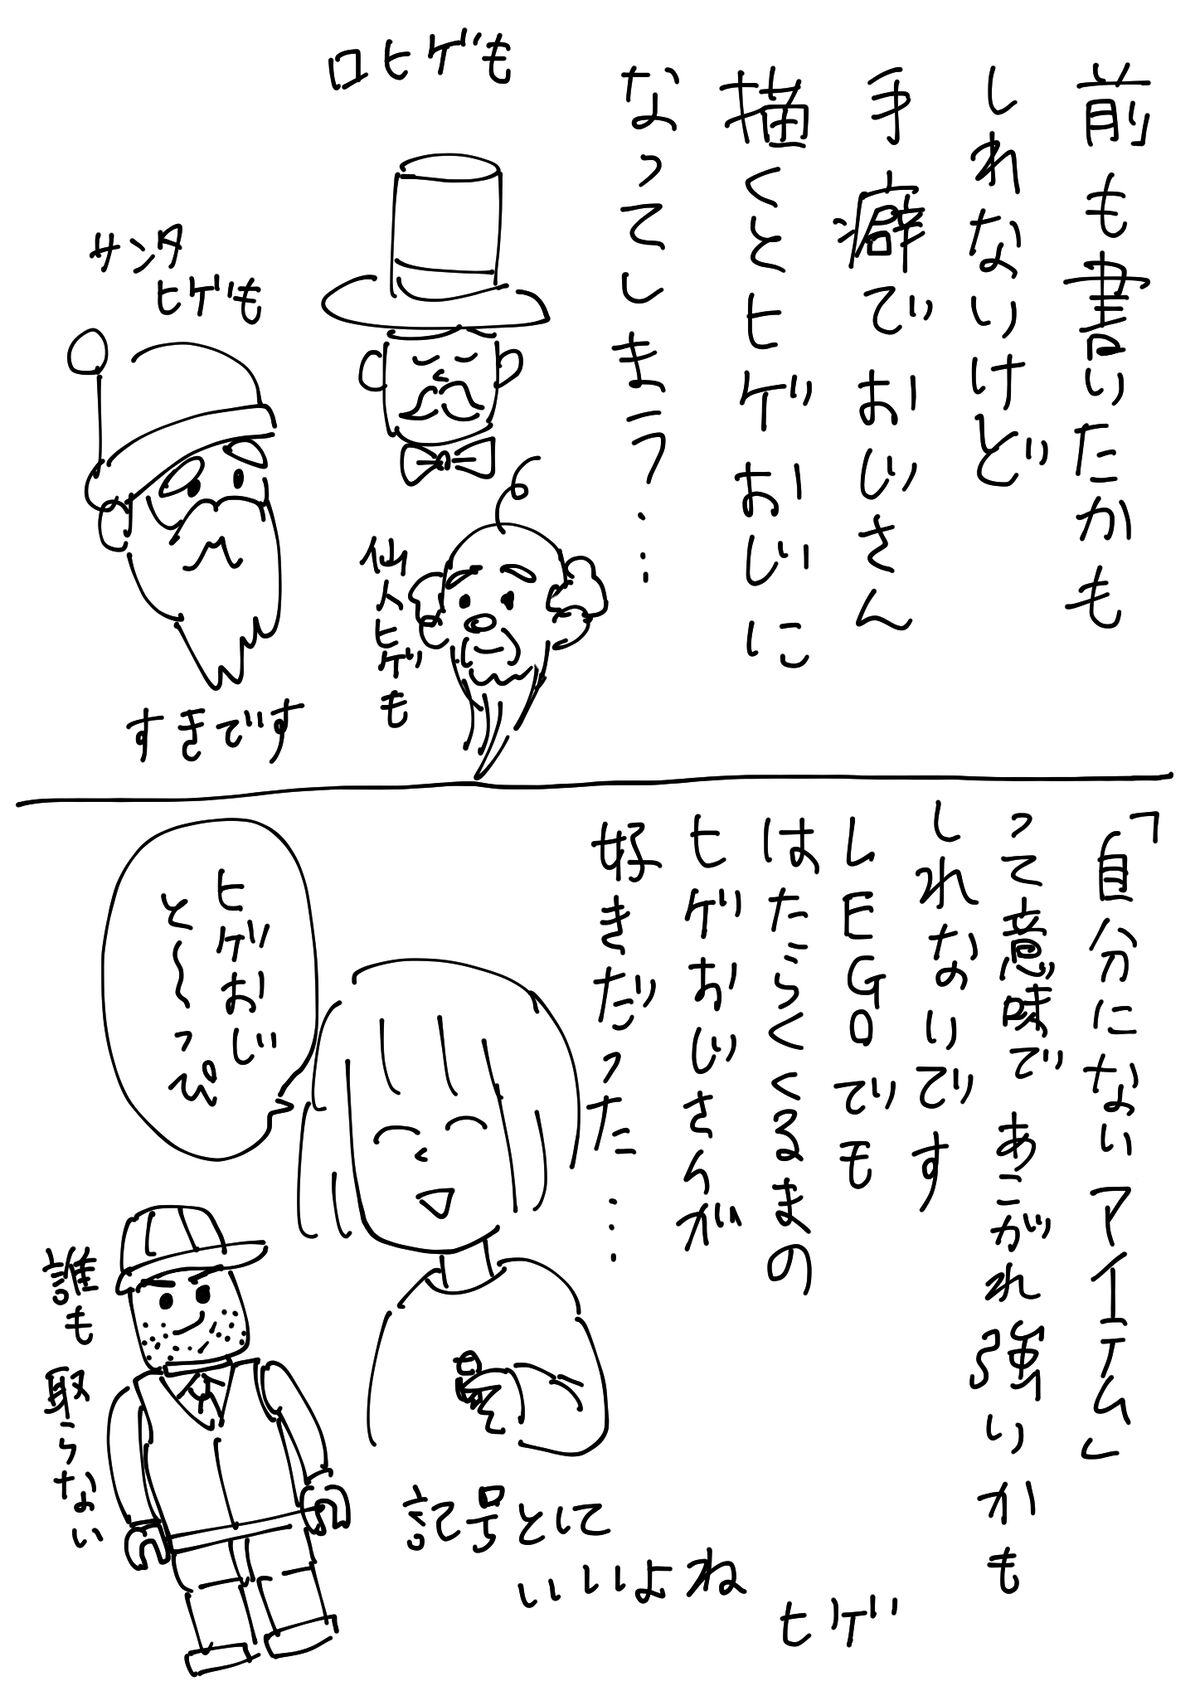 前も書いたかも
しれないけど
手癖でおじさん
描くとヒゲおじに
なってしまう…
口ヒゲも
サンタ
ヒゲも
仙人ヒゲも
すきです
「自分にないアイテム」
って意味であこがれ強いかも
しれないです
LEGOでも
はたらくくるまの
ヒゲおじさんが
好きだった…
ヒゲおじ
と〜っぴ
誰も取らない
記号として
いいよね
ヒゲ